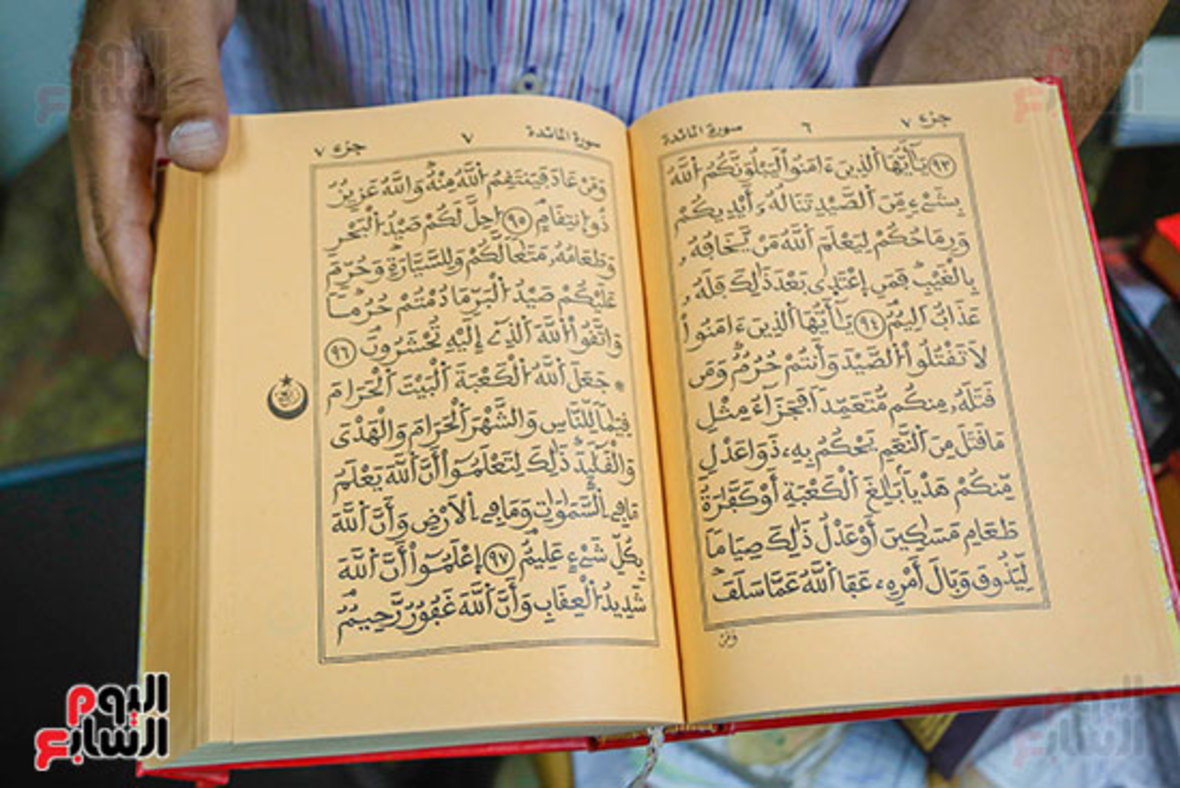 جزء ٧ ٦ سورة المائدة
٩٣ يَٰٓأَيُّهَا اَ۬لذِينَ ءَامَنُواْ لَيَبْلُوَنَّكُمُ اُ۬للَّهُ
بِشَےْءٖ مِّنَ اَ۬لصَّيْدِ تَنَالُهُۥٓ أَيْدِيكُمْ
وَرِمَاحُكُمْ لِيَعْلَمَ اَ۬للَّهُ مَنْ يَّخَافُهُۥ
بِالْغَيْبِ فَمَنِ اِ۪عْتَد۪ىٰ بَعْدَ ذَٰلِكَ فَلَهُۥ
عَذَابٌ اَلِيمٌ ٩٤ يَٰٓأَيُّهَا اَ۬لذِينَ ءَامَنُواْ
لَا تَقْتُلُواْ اُ۬لصَّيْدَ وَأَنتُمْ حُرُمٌ وَمَن
قَتَلَهُۥ مِنكُم مُّتَعَمِّداً فَجَزَآءُ مِثْلِ
مَا قَتَلَ مِنَ اَ۬لنَّعَمِ يَحْكُمُ بِهِۦ ذَوَا عَدْلٖ
مِّنكُمْ هَدْياَۢ بَٰلِغَ اَ۬لْكَعْبَةِ أَوْ كَفَّٰرَةُ
طَعَامِ مَسَٰكِينَ أَوْ عَدْلُ ذَٰلِكَ صِيَاماٗ
لِّيَذُوقَ وَبَالَ أَمْرِهِۦ عَفَا اَ۬للَّهُ عَمَّا سَلَفَ
وَمَنْ
سورة المائدة ٧ جزء ٧
وَمَنْ عَادَ فَيَنتَقِمُ اُ۬للَّهُ مِنْهُ وَاللَّهُ عَزِيزٞ
ذُو اُ۪نتِقَامٍ ٩٥ اُحِلَّ لَكُمْ صَيْدُ اُ۬لْبَحْرِ
وَطَعَامُهُۥ مَتَٰعاٗ لَّكُمْ وَلِلسَّيَّارَةِ وَحُرِّمَ
عَلَيْكُمْ صَيْدُ اُ۬لْبَرِّ مَا دُمْتُمْ حُرُماٗ
وَاتَّقُواْ اُ۬للَّهَ اَ۬لذِےٓ إِلَيْهِ تُحْشَرُونَ ٩٦
* جَعَلَ اَ۬للَّهُ اُ۬لْكَعْبَةَ اَ۬لْبَيْتَ اَ۬لْحَرَامَ
قِيَٰماٗ لِّلنَّاسِ وَالشَّهْرَ اَ۬لْحَرَامَ وَالْهَدْىَ
وَالْقَلَٰٓئِدَ ذَٰلِكَ لِتَعْلَمُوٓاْ أَنَّ اَ۬للَّهَ يَعْلَمُ
مَا فِے اِ۬لسَّمَٰوَٰتِ وَمَا فِے اِ۬لَارْضِ وَأَنَّ اَ۬للَّهَ
بِكُلِّ شَےْءٍ عَلِيمٌ ٩٧ اِ۪عْلَمُوٓاْ أَنَّ اَ۬للَّهَ
شَدِيدُ اُ۬لْعِقَابِ وَأَنَّ اَ۬للَّهَ غَفُورٞ رَّحِيمٞ
اليوم
السابع